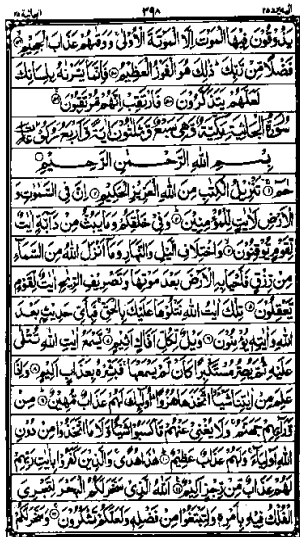 اليه يرد ٢٥ ٣٩٨ الجاثية ٤٥
يَذُوقُونَ فِيهَا الْمَوْتَ إِلَّا الْمَوْتَةَ الْأُولَىٰ وَوَقَاهُمْ عَذَابَ الْجَحِيمِ
فَضْلًا مِّن رَّبِّكَ ذَٰلِكَ هُوَ الْفَوْزُ الْعَظِيمُ فَإِنَّمَا يَسَّرْنَاهُ بِلِسَانِكَ
لَعَلَّهُمْ يَتَذَكَّرُونَ فَارْتَقِبْ إِنَّهُم مُّرْتَقِبُونَ
سُورَةُ الْجَاثِيَةِ مَكِّيَّةٌ وَهِيَ سَبْعٌ وَثَلَاثُونَ آيَةً وَأَرْبَعُ رُكُوعَاتٍ
بِسْمِ اللَّهِ الرَّحْمَٰنِ الرَّحِيمِ
حمٓ تَنزِيلُ الْكِتَٰبِ مِنَ اللَّهِ الْعَزِيزِ الْحَكِيمِ إِنَّ فِي السَّمَٰوَٰتِ وَ
الْأَرْضِ لَآيَٰتٍ لِّلْمُؤْمِنِينَ وَفِي خَلْقِكُمْ وَمَا يَبُثُّ مِن دَآبَّةٍ آيَٰتٌ
لِّقَوْمٍ يُوقِنُونَ وَاخْتِلَافِ الَّيْلِ وَالنَّهَارِ وَمَآ أَنزَلَ اللَّهُ مِنَ السَّمَآءِ
مِن رِّزْقٍ فَأَحْيَا بِهِ الْأَرْضَ بَعْدَ مَوْتِهَا وَتَصْرِيفِ الرِّيَٰحِ آيَٰتٌ لِّقَوْمٍ
يَعْقِلُونَ تِلْكَ آيَٰتُ اللَّهِ نَتْلُوهَا عَلَيْكَ بِالْحَقِّ فَبِأَيِّ حَدِيثٍ بَعْدَ
اللَّهِ وَآيَٰتِهِ يُؤْمِنُونَ وَيْلٌ لِّكُلِّ أَفَّاكٍ أَثِيمٍ يَسْمَعُ آيَٰتِ اللَّهِ تُتْلَىٰ
عَلَيْهِ ثُمَّ يُصِرُّ مُسْتَكْبِرًا كَأَن لَّمْ يَسْمَعْهَا فَبَشِّرْهُ بِعَذَابٍ أَلِيمٍ وَإِذَا
عَلِمَ مِنْ آيَٰتِنَا شَيْـًٔا اتَّخَذَهَا هُزُوًا أُولَٰٓئِكَ لَهُمْ عَذَابٌ مُّهِينٌ مِن
وَرَآئِهِمْ جَهَنَّمُ وَلَا يُغْنِي عَنْهُم مَّا كَسَبُوا شَيْـًٔا وَلَا مَا اتَّخَذُوا مِن دُونِ
اللَّهِ أَوْلِيَآءَ وَلَهُمْ عَذَابٌ عَظِيمٌ هَٰذَا هُدًى وَالَّذِينَ كَفَرُوا بِآيَٰتِ رَبِّهِمْ
لَهُمْ عَذَابٌ مِّن رِّجْزٍ أَلِيمٌ اللَّهُ الَّذِي سَخَّرَ لَكُمُ الْبَحْرَ لِتَجْرِيَ
الْفُلْكُ فِيهِ بِأَمْرِهِ وَلِتَبْتَغُوا مِن فَضْلِهِ وَلَعَلَّكُمْ تَشْكُرُونَ وَسَخَّرَ لَكُم